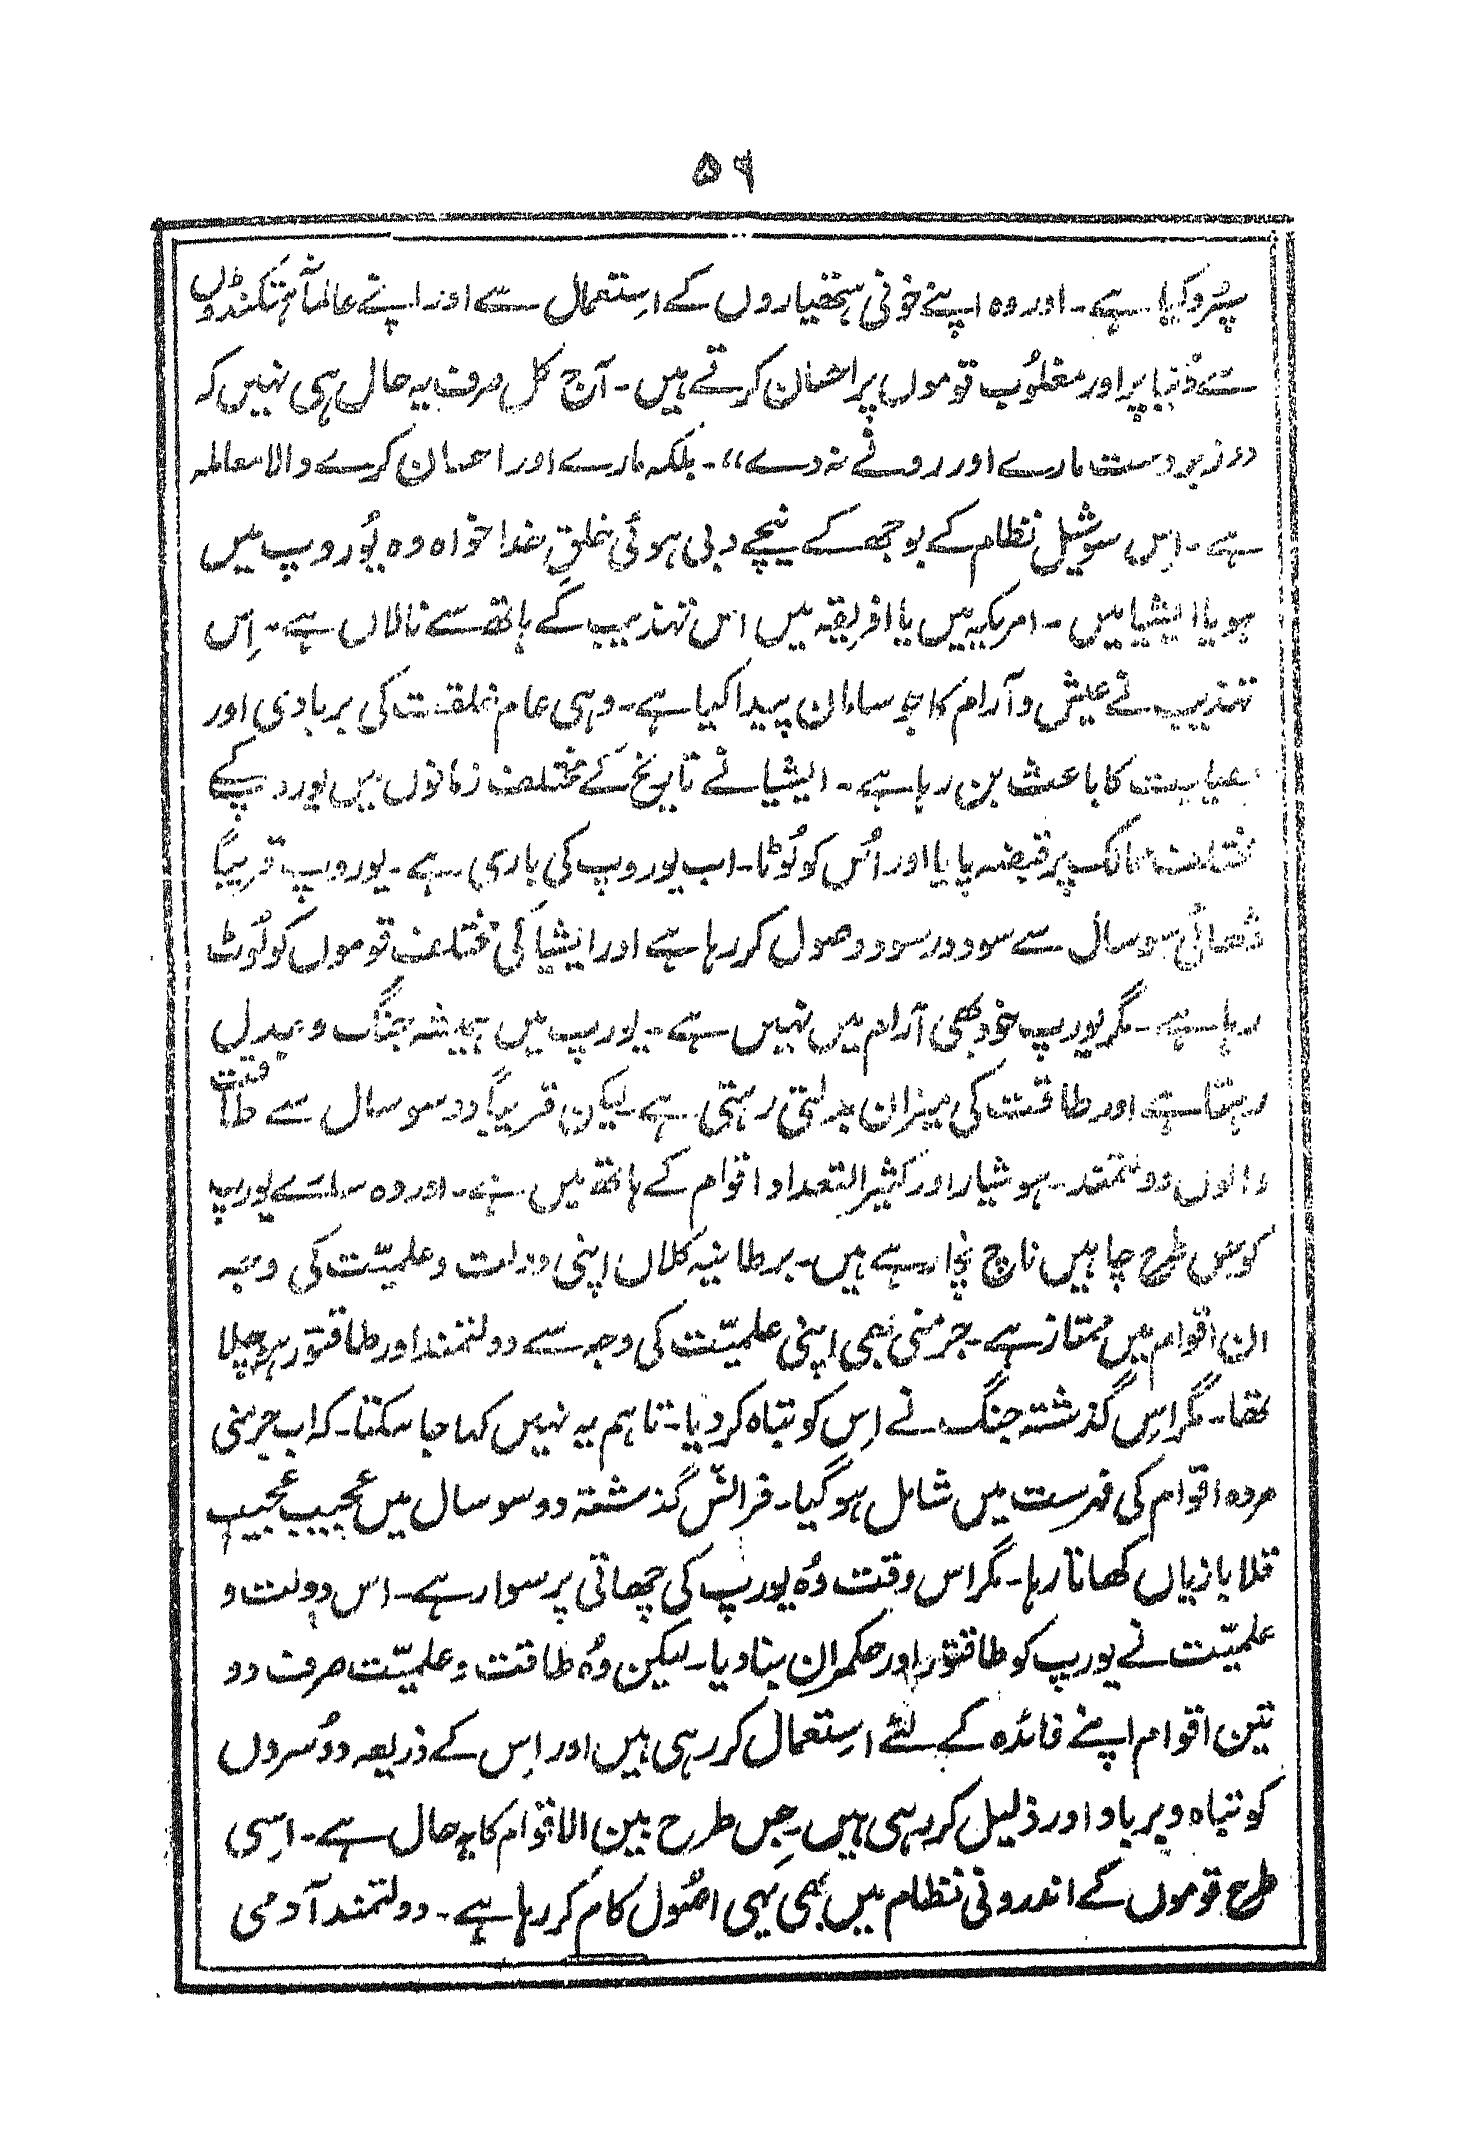 ۵۶
سپرد کیا ہے۔ اور وہ اپنے خونی ہتھیاروں کے استعمال سے اور اپنے عالمانہ ہتکنڈوں
سے دُنیا پر اور مغلُوب قوموں پر احسان کرتے ہیں۔ آج کل صرف یہ حال ہی نہیں کہ
”زبردست مارے اور رونے نہ دے“۔ بلکہ مارے اور احسان کرے والا معاملہ
ہے۔ اِس سوشیل نظام کے بوجھ کے نیچے دبی ہوئی خلقِ خدا خواہ وہ یُوروپ میں
ہو یا ایشیا میں۔ امریکہ میں یا افریقہ میں اس تہذیب کے ہاتھ سے نالاں ہے۔ اِس
تہذیب نے عیش و آرام کا جو سامان پیدا کیا ہے۔ وہی عام خلقت کی بربادی اور
کا باعث بن رہا ہے۔ ایشیا نے تاریخ کے مختلف زمانوں میں یوروپ کے
مختلف ممالک پر قبضہ پایا اور اُس کو لُوٹا۔ اب یوروپ کی باری ہے۔ یوروپ قریباً
ڈھائی سو سال سے سود در سود وصول کر رہا ہے اور ایشیا کی مختلف قوموں کو لُوٹ
رہا ہے۔ مگر یورپ خود بھی آرام میں نہیں ہے۔ یورپ میں ہمیشہ جنگ و جدل
رہتا ہے اور طاقت کی میزان بدلتی رہتی ہے۔ لیکن قریباً دو سو سال سے طاقت
دانوں دولتمند۔ ہوشیار اور کثیر التعداد اقوام کے ہاتھ میں ہے۔ اور وہ سارے یورپ
کو جس طرح چاہیں ناچ نچا رہے ہیں۔ برطانیہ کلاں اپنی دولت و علمیّت کی وجہ
ان اقوام میں ممتاز ہے۔ جرمنی بھی اپنی علمیّت کی وجہ سے دولتمند اور طاقتور ہو چلا
تھا۔ مگر اِس گذشتہ جنگ نے اِس کو تباہ کر دیا۔ تاہم یہ نہیں کہا جا سکتا۔ کہ اب جرمنی
مردہ اقوام کی فہرست میں شامل ہو گیا۔ فرانس گذشتہ دو سو سال میں عجیب عجیب
قلابازیاں کھاتا رہا۔ مگر اس وقت وُہ یورپ کی چھاتی پر سوار ہے۔ اس دولت و
علمیّت نے یورپ کو طاقتور اور حکمران بنا دیا۔ لیکن وُہ طاقت و علمیّت صرف دو
تین اقوام اپنے فائدہ کے لئے استعمال کر رہی ہیں اور اِس کے ذریعہ دُوسروں
کو تباہ و برباد اور ذلیل کر رہی ہیں۔ جِس طرح بین الاقوام کا یہ حال ہے۔ اِسی
طرح قوموں کے اندرونی نظام میں بھی یہی اصُول کام کر رہا ہے۔ دولتمند آدمی